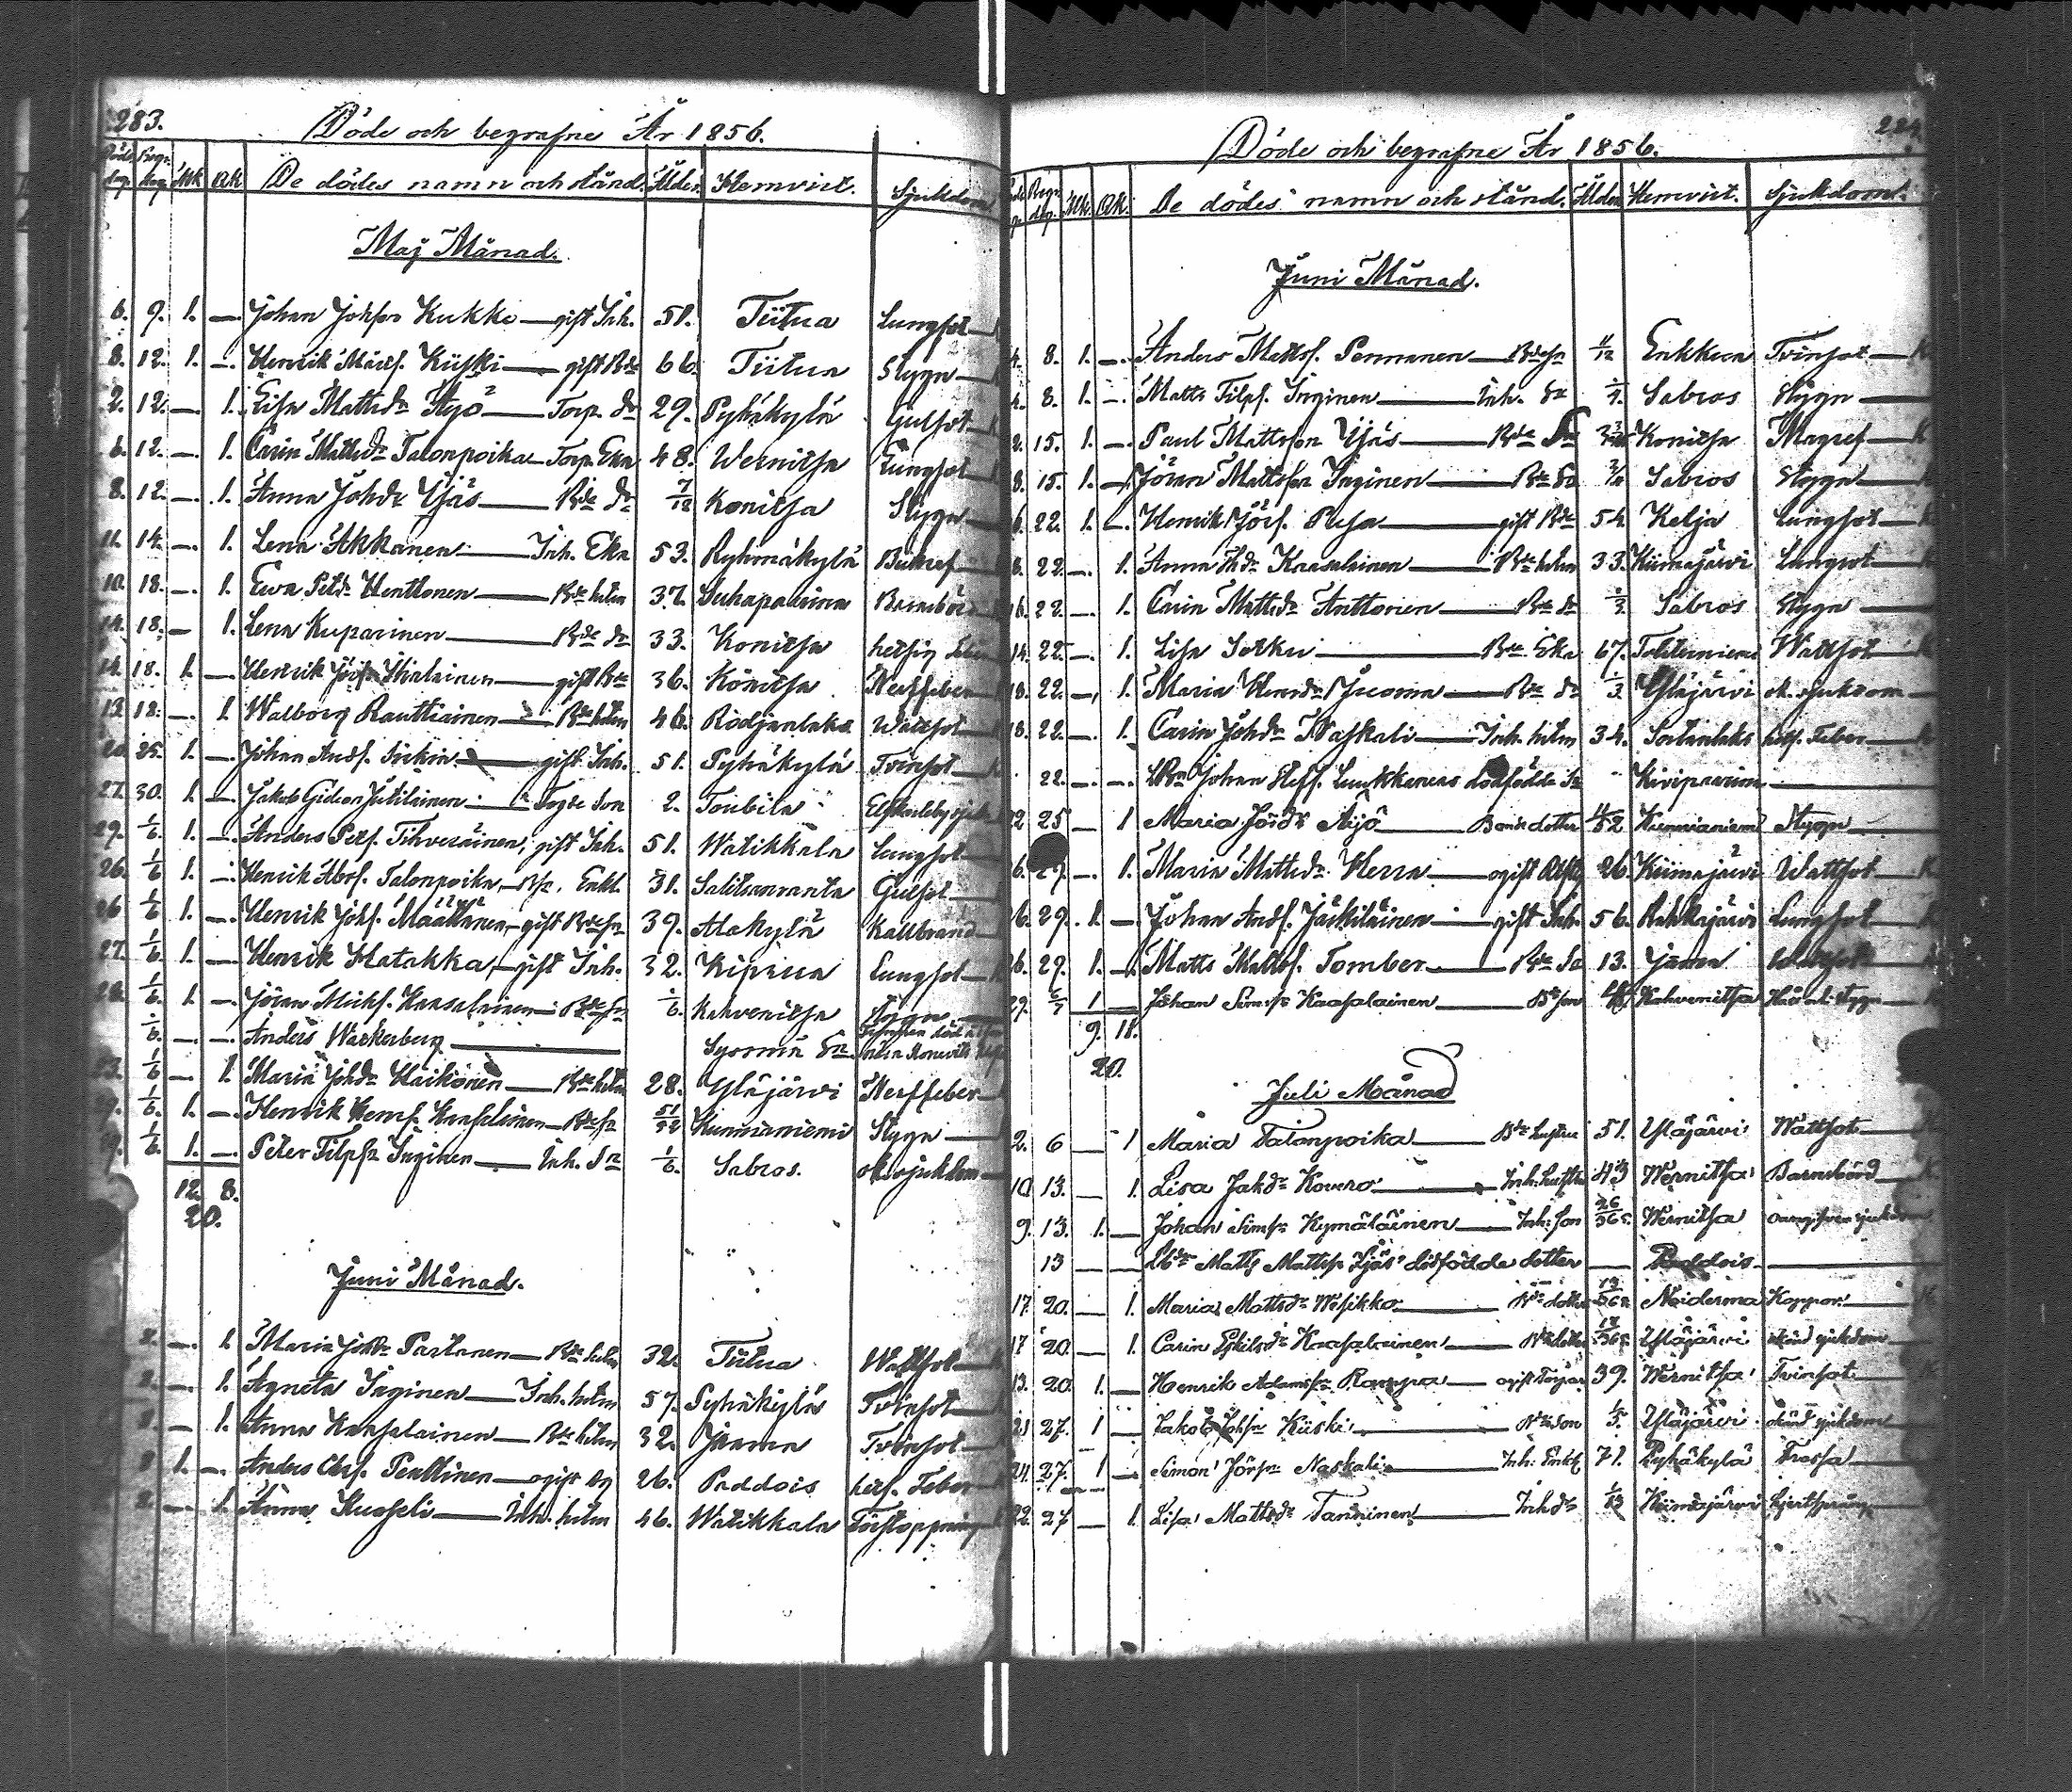 283.
Döde och begrafne År 1856.
Döds dag. Begr. dag. Mk. Qk. De dödes namn och stånd. Ålder. Hemvist. Sjukdom
Maj Månad.
6. 9. 1. — Johan Johsson Kukko — gift Inh. 51. Tiitua Lungsot
8. 12. 1. — Henrik Kiiski — gift Bde 66. Tiitua Stygn
2. 12. — 1. Lisa Mattsdr Äyjö — Torp. dr 29. Pyhäkylä Gulsot
6. 12. — 1. Carin Mattsdr Talonpoika — Torp. Eka 48. Wernitsa Lungsot
8. 12. — 1. Anna Johdr Yjäs — Bde dr 7/12 Konitsa Stygn
11. 14. — 1. Lena Akkanen — Inh. Eka 53. Ryhmäkylä Bukref
10. 18. — 1. Ewa Petdr Henttonen — Bde hstru 37. Suhapaarina Barnsbörd
14. 18. — 1. Lena Kuparinen — Bde dr 33. Konitsa hetsig
14. 18. 1. — Henrik — gift Bde 36. Konitsa Nerffeber
13. 18. — 1. Walborg Rauttiainen — Bde hstru 46. Rödjanlaks Wattsot
20. 25. 1. — Johan Andsf. — gift Inh. 51. Pyhäkylä Tvinsot
27. 30. 1. — Jakob Gideon Jutilainen — Son 2. Toubila
29. 1/6. 1. — Anders Persf. Tihveräinen, gift Inh. 51. Watikkala Lungsot
26. 1/6 1. — Henrik Abrsf. Talonpoika, Enkl. 31. Salitsanranta Gulsot
26 1/6 1. — Henrik Johsf. Määttänen — gift Bdesn 39. Alakylä Kallbrand
27. 1/6. 1. — Henrik Hatakka, — gift Inh. 32. Kiprua Lungsot
28. 1/6. 1. — Jöran Michsf. Kaasalainen Bdesn 1/6. Kahvenitsa Stygn
1/6. — — Anders Wackerberg — Sysmä Sn
23. 1/6 — 1. Maria Johdr Haikonen — Bde hstru 28. Yläjärvi Nerffeber
29. 1/6. 1. — Henrik Hensf. Kaasalainen — Bdesn 51/52 Kunnianiemi Stygn
29. 1/6. 1. — Peter Filpsn Inginen — Inh. Sn 1/6. Sabros. ok. sjukdom
12. 8.
20.
Juni Månad.
2. — 1. Maria Johdr Partanen — Bde hstru 32. Tiitua Wattsot
2. — 1. Agneta Inginen — Inh. hstru 57. Pyhäkylä Tvinsot
2. — 1. Anna Kaasalainen — Bde hstru 32. Jaama Tvinsot
2. 1. — Anders Chrsf. Penttinen — ogift 26. Paddois hets. Feber
2. — 1. Anna Kuoseli — Inh. hstru 46. Watikkala Förstoppning
Döde och begrafne År 1856.
Begr. dag. Mk. Qk. De dödes namn och stånd. Ålder Hemvist. Sjukdom.
Juni Månad.
4. 8. 1. — Anders Mattsf. Penmanen — Bdesn 11/12 Enkkua Tvinsot
4. 8. 1. — Matts Filpsf. Inginen — Inh. Sn Sabros Stygn
2. 15. 1. — Paul Mattsson Yjäs — Bde Sn Konitsa Magref
8. 15. 1. — Jöran Mattsson Inginen — Bde Sn Sabros Stygn
16. 22. 1. — Henrik Jörsf. Pusa — gift Bde 54 Kelja Lungsot
16. 22. — 1. Anna Kaasalainen — Bde hstru 33. Kiimajärvi Lungsot
16. 22. — 1. Carin Mattsdr Anttonen — Bde dr Sabros Stygn
14. 22. — 1. Lisa Sorku — Bde Eka 67. Wattsot
18. 22. — 1. Maria Henrdr Jucoma — Bde dr 1/3. Yläjärvi ok. sjukdom
18. 22. — 1. Carin Johdr Naskali — Inh. hstru 34. Sortanlaks hets. Feber
22. — — Johan Steff. Luukkanens dödfödde Sn Kiviparina
22 25 — 1 Maria Äijö — Bonde dotter 11/52 Kunnianiemi Stygn
26. 29. — 1. Maria Mattsdr Herra — ogift 26. Kiimajärvi Wattsot
26. 29. 1. — Johan Andsf. Jäskiläinen — gift Inh. 56. Rahkajärvi Lungsot
26. 29. 1. — Matts Mattsf. Tomber — Bde So 13. Jaama
29. 6/7 1 — Johan Simsn Kaasalainen — Bde son Kahvenitsa
9. 11.
20.
Juli Månad
2. 6 — 1 Maria Talonpoika — Bde hustru 51. Yläjärvi Wattsot
10 13. — 1. Lisa Jakdr Kovero — Inh. hustru 43 Wernitsa Barnsbörd
9. 13. 1. — Johan Simsn Kymäläinen — Inh. Son 26/365. Wernitsa oangifven sjukdom
13 — — Bde Matts Mattsn Yjäs' dödfödde dotter — Paddois —
17. 20. — 1. Maria Mattsdr Wesikko — Bde dotter 13/365. Noiderma Koppor.
17 20. — 1. Carin Eskilsdr Kaasalainen — Bde dotter Yläjärvi okänd sjukdom
13. 20. 1. — Henrik Adamsn Rampa — ogift Torpar 39. Wernitsa Tvinsot
21 27. 1 — Jakob Johsn Kiiski — Bde son 1/5. Yläjärvi okänd sjukdom
24. 27. 1 — Simon Jörsn Naskali — Inh. Enkl. 71. Pyhäkylä Frossa
22. 27 — 1. Lisa Mattsdr Tanninen — Inh dr Kiimajärvi